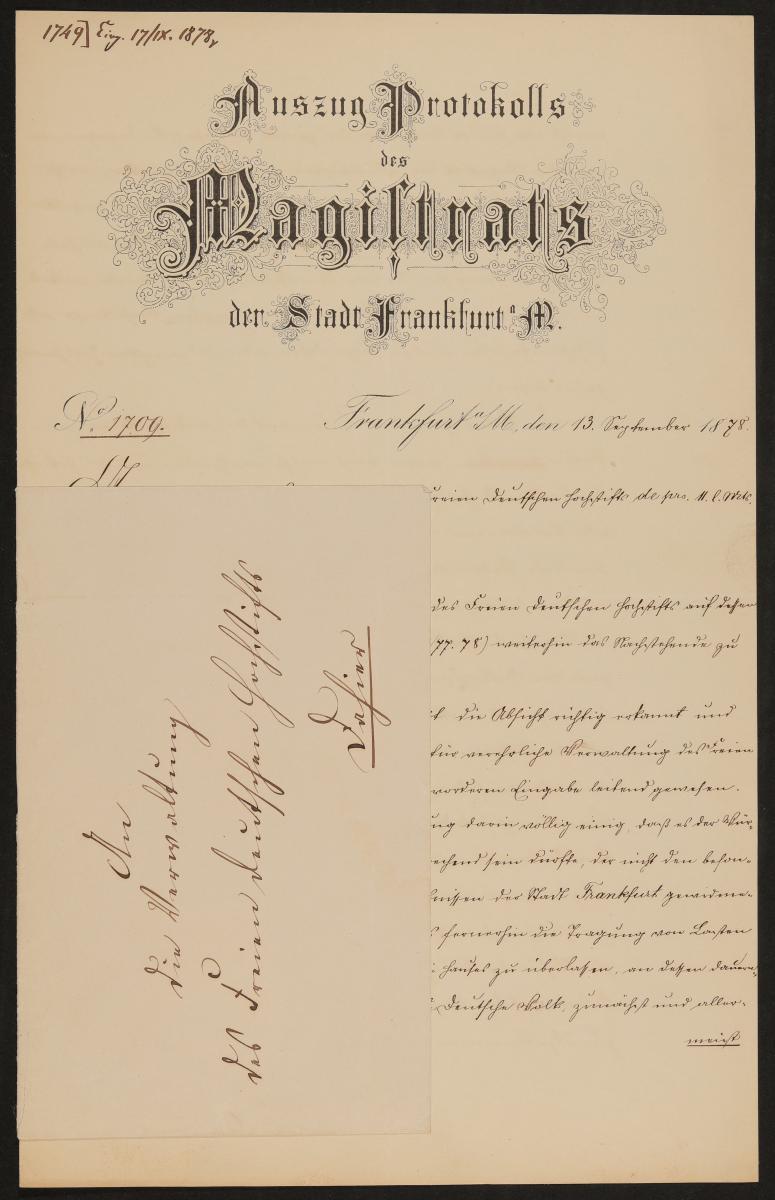 1749] Eing. 17/IX. 1878,
Auszug Protokolls
des
Magiſtrats
der Stadt Frankfurt a M.
No. 1709.
Frankfurt a/M, den 13. September 1878.
Freien Deutschen Hochstifts de prs. 11. l. Mts.
des Freien Deutschen Hochstifts auf dessen
77. 78) weiterhin das Nachstehende zu
die Absicht richtig erkannt und
für verehrliche Verwaltung des Freien
vorderen Eingabe leitend gewesen.
ung darin völlig einig, daß es der Wür-
echend sein dürfte, der nicht den beson-
nissen der Stadt Frankfurt gewidme-
fernerhin die Tragung von Lasten
Hauses zu überlassen, an dessen dauern-
Deutsche Volk, zunächst und aller-
meist
An
die Verwaltung
des Freien Deutschen Hochstifts
Dahier